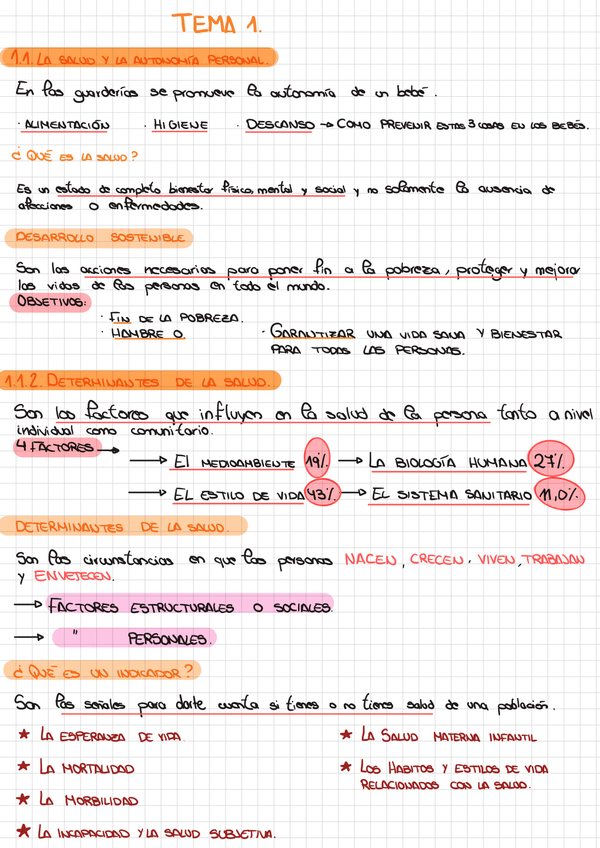 TEMA 1.
1.1. LA SALUD Y LA AUTONOMÍA PERSONAL.
En las guarderías se promueve la autonomía de un bebé.
· ALIMENTACIÓN · HIGIENE · DESCANSO → COMO PREVENIR ESTAS 3 COSAS EN LOS BEBÉS.
¿QUÉ ES LA SALUD?
Es un estado de completo bienestar físico, mental y social y no solamente la ausencia de
afecciones o enfermedades.
DESARROLLO SOSTENIBLE
Son las acciones necesarias para poner fin a la pobreza, proteger y mejorar
las vidas de las personas en todo el mundo.
OBJETIVOS:
· FIN DE LA POBREZA.
· HAMBRE O. · GARANTIZAR UNA VIDA SANA Y BIENESTAR
PARA TODAS LAS PERSONAS.
1.1.2. DETERMINANTES DE LA SALUD.
Son los factores que influyen en la salud de la persona tanto a nivel
individual como comunitario.
4 FACTORES →
→ El MEDIOAMBIENTE 19% → LA BIOLOGÍA HUMANA 27%.
→ EL ESTILO DE VIDA 43% → EL SISTEMA SANITARIO 11,0%.
DETERMINANTES DE LA SALUD.
Son las circunstancias en que las personas NACEN, CRECEN, VIVEN, TRABAJAN
Y ENVEJECEN.
→ FACTORES ESTRUCTURALES O SOCIALES.
→ " PERSONALES.
¿QUÉ ES UN INDICADOR?
Son las señales para darte cuenta si tienes o no tienes salud de una población.
★ LA ESPERANZA DE VIDA. ★ LA SALUD MATERNA INFANTIL
★ LA MORTALIDAD ★ LOS HABITOS Y ESTILOS DE VIDA
RELACIONADOS CON LA SALUD.
★ LA MORBILIDAD
★ LA INCAPACIDAD Y LA SALUD SUBJETIVA.